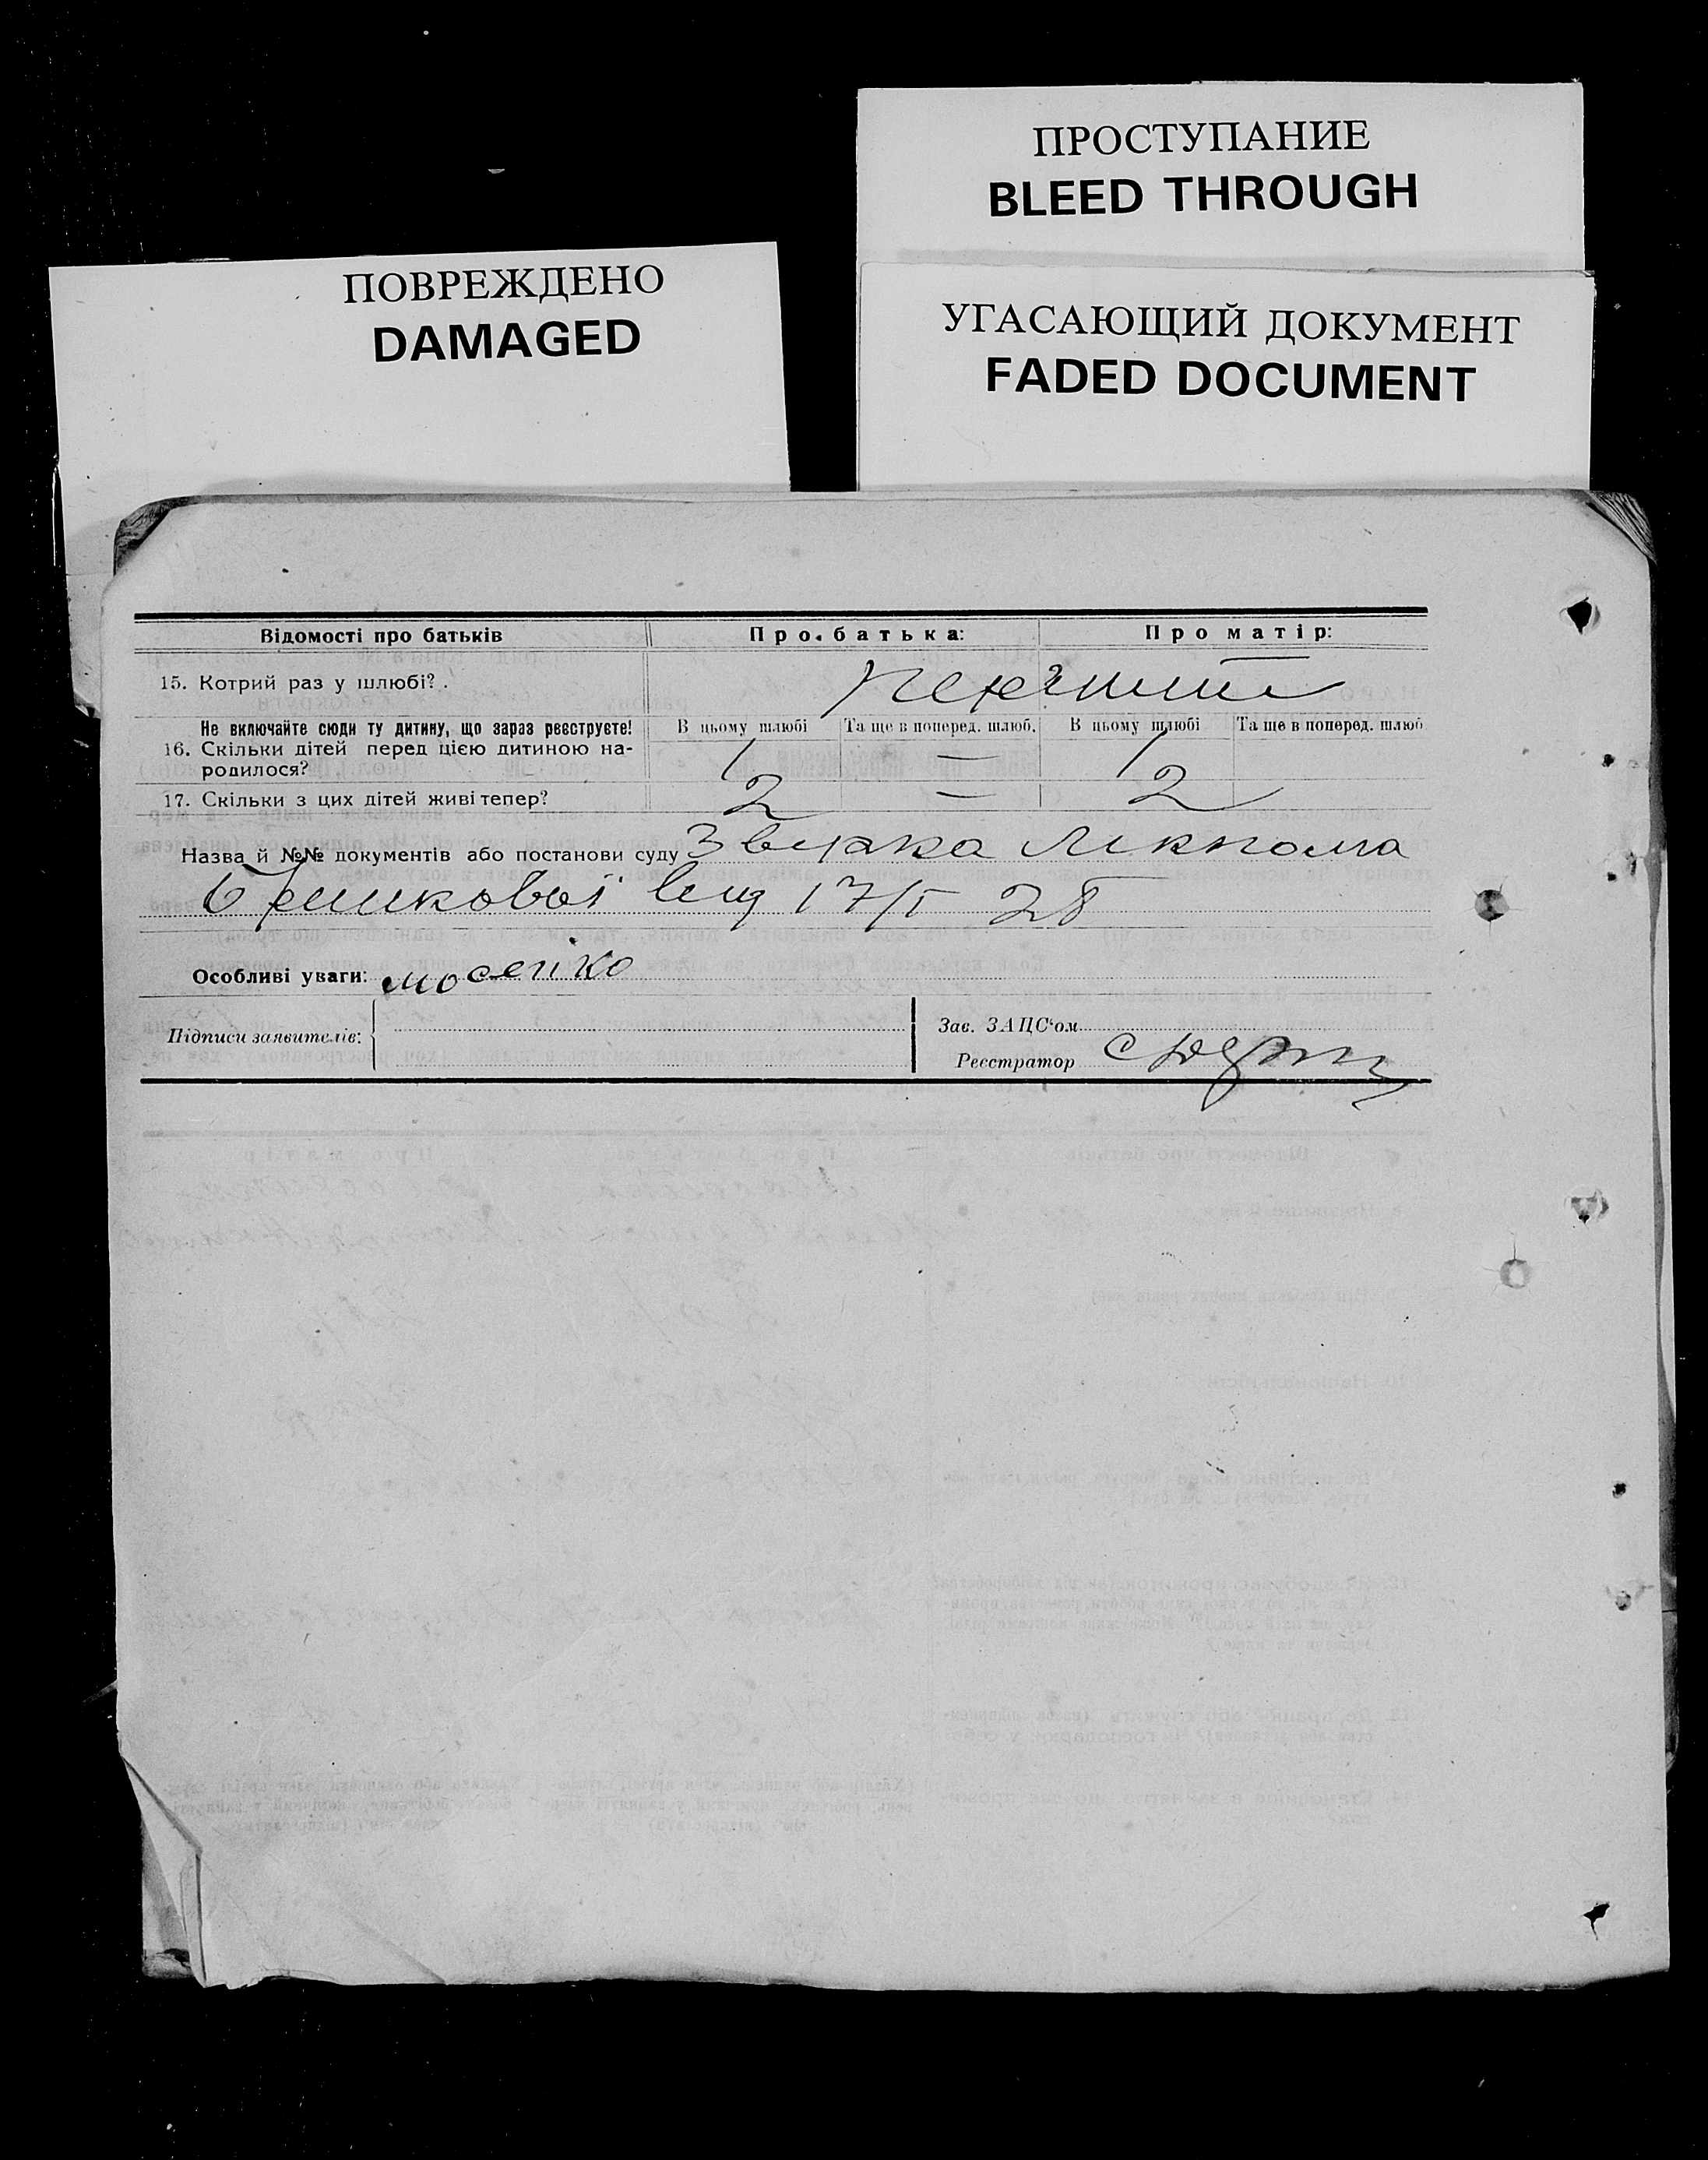 ПРОСТУПАНИЕ
BLEED THROUGH
ПОВРЕЖДЕНО
DAMAGED
УГАСАЮЩИЙ ДОКУМЕНТ
FADED DOCUMENT
Відомості про батьків
Про батька:
Про матір:
15. Котрий раз у шлюбі?
Не включайте сюди ту дитину, що зараз реєструєте!
В цьому шлюбі
Та ще в поперед. шлюб.
В цьому шлюбі
Та ще в поперед. шлюб
16. Скільки дітей перед цією дитиною на-
родилося?
1 — 1
17. Скільки з цих дітей живі тепер?
2 — 2
Назва й №№ документів або постанови суду
17/I 28
Особливі уваги:
Підписи заявителів:
Зав. ЗАЦС'ом
Реєстратор